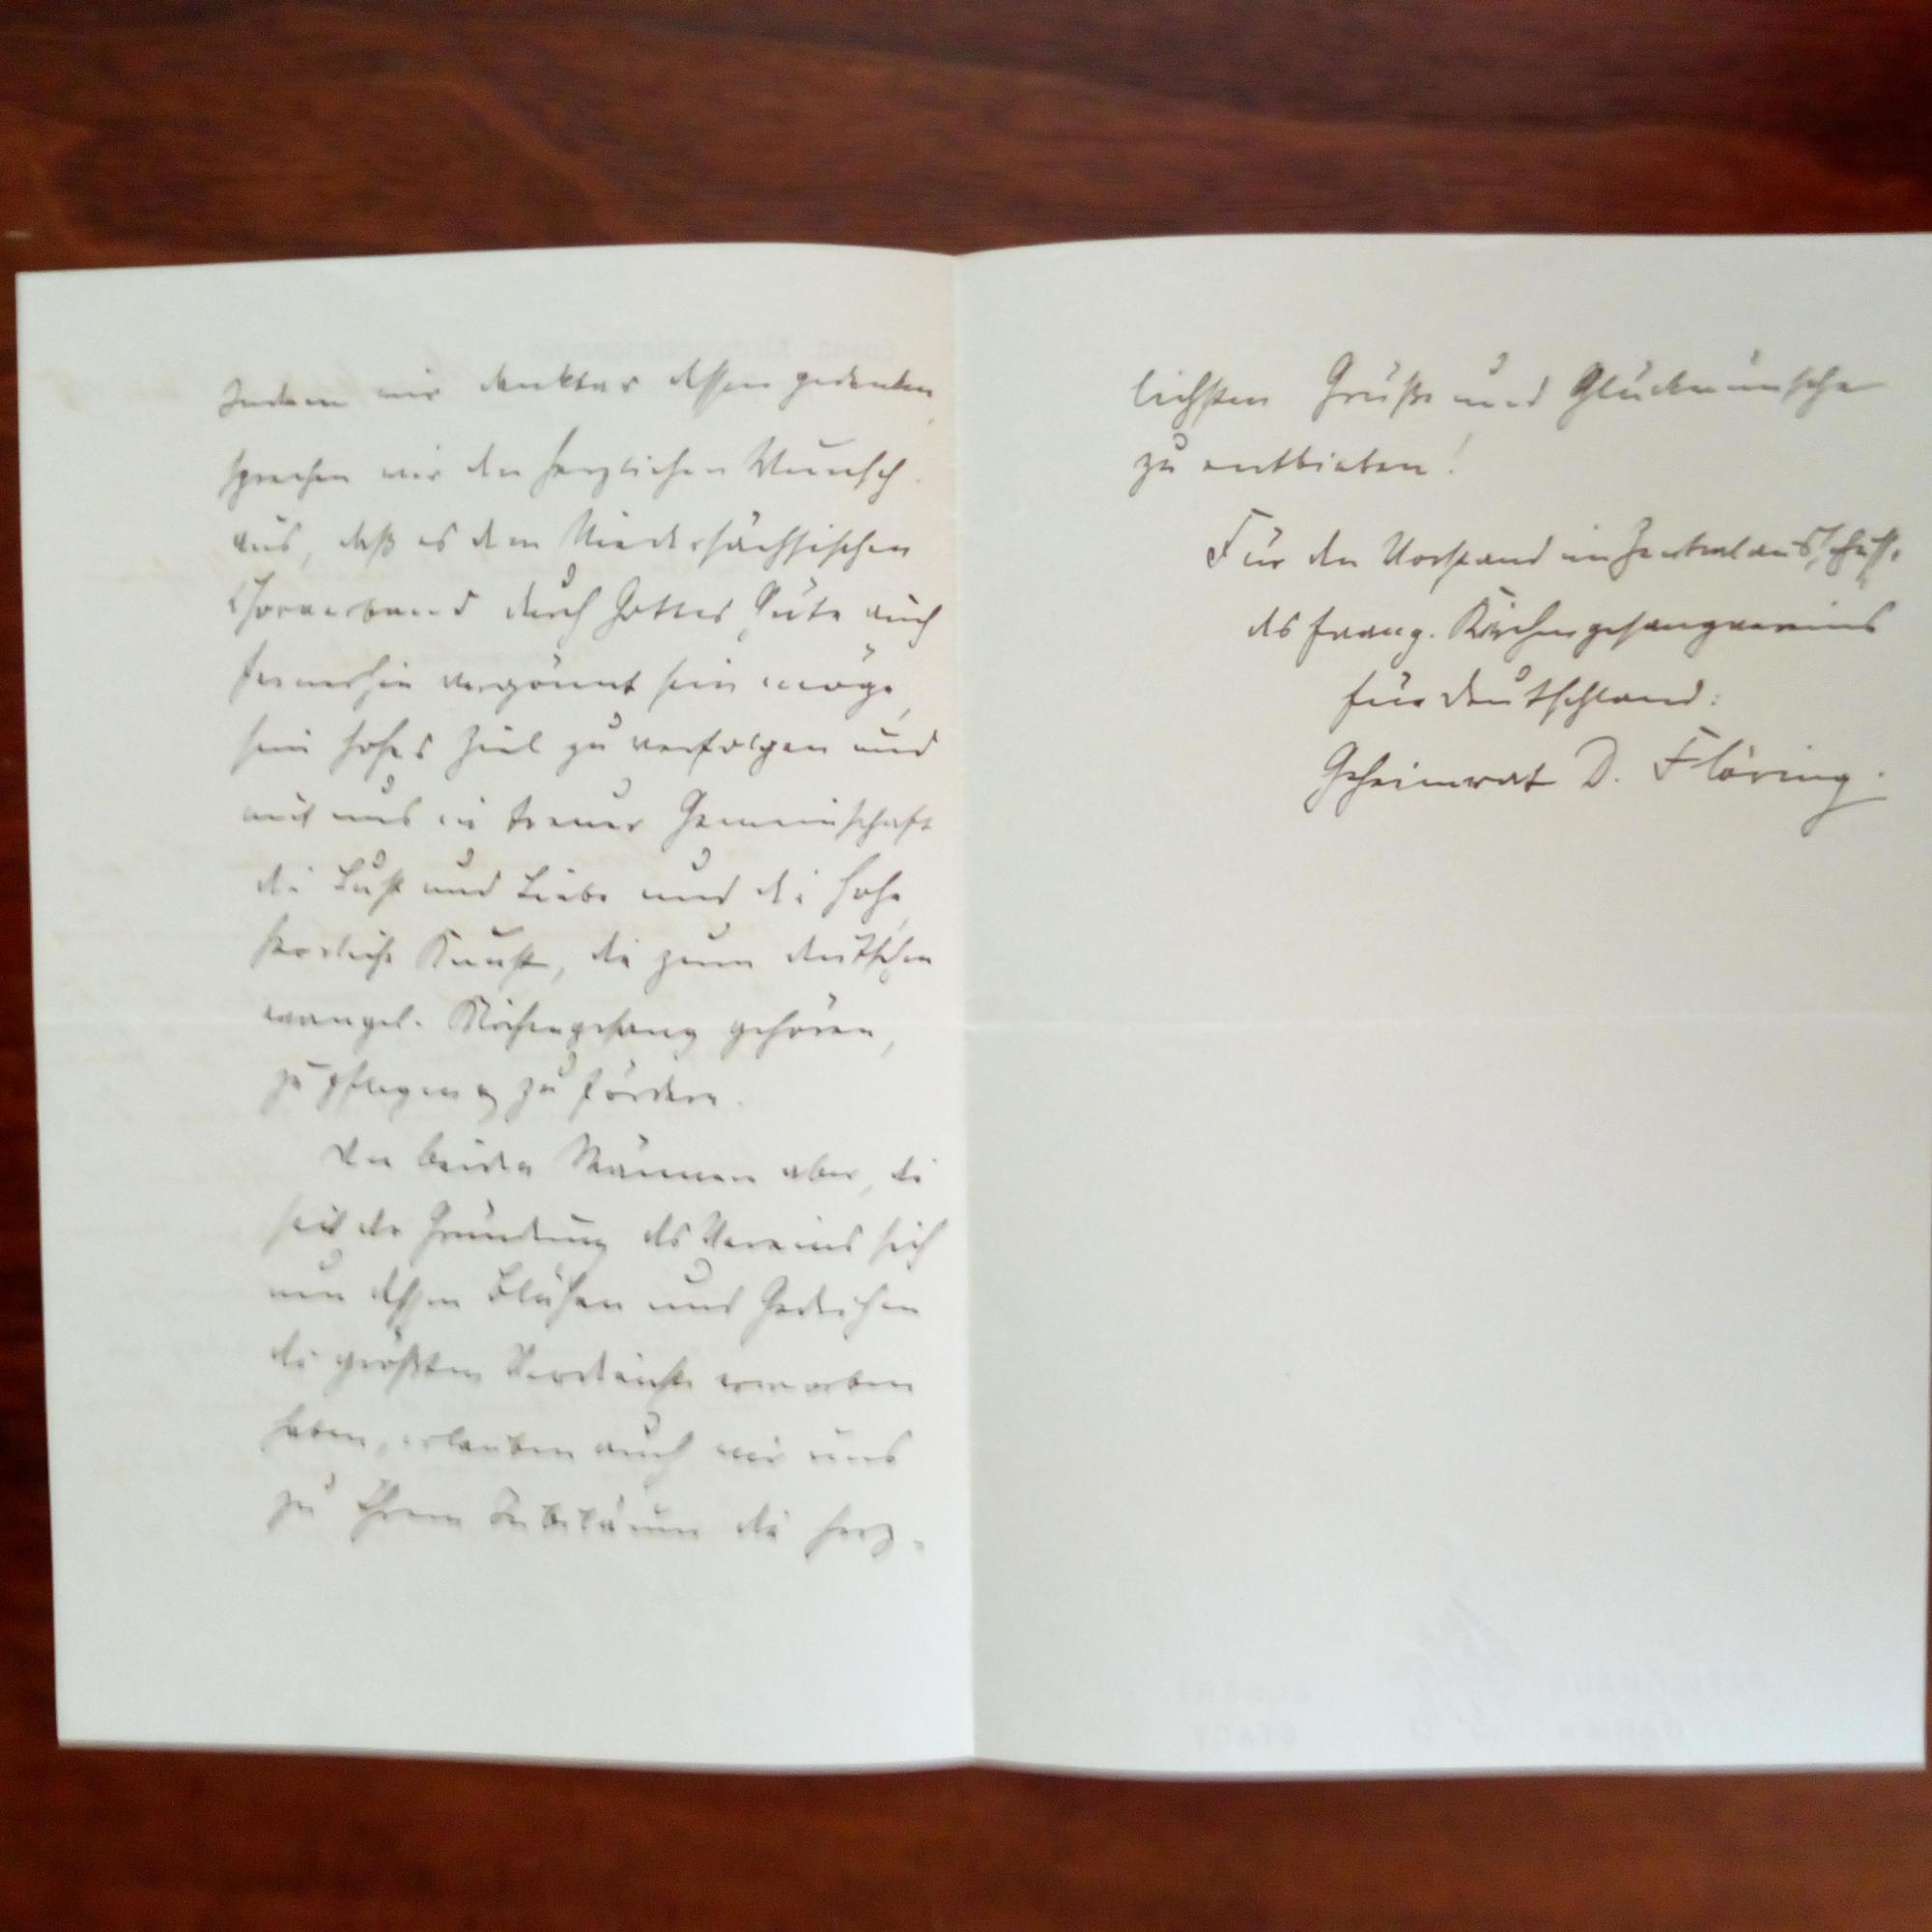 Indem wir dankbar dessen gedenken,
sprechen wir den herzlichen Wunsch
aus, daß es dem Niedersächsischen
Chorverband durch Gottes Güte auch
fernerhin vergönnt sein möge,
sein hohes Ziel zu verfolgen und
mit uns in treuer Gemeinschaft
die Lust und Liebe und die hohe,
herrliche Kunst, die zum deutschen
evangel. Kirchengesang gehören,
zu pflegen u. zu fördern.
Den beiden Männern aber, die
seit der Gründung des Vereins sich
um dessen Blühen und Gedeihen
die größten Verdienste erworben
haben, erlauben auch wir uns
zu Ihrem Jubiläum die herz-
lichsten Grüße und Glückwünsche
zu entbieten!
Für den Vorstand im Zentralausschuß
des evang. Kirchengesangvereins
für Deutschland:
Geheimrat D. Flöring.